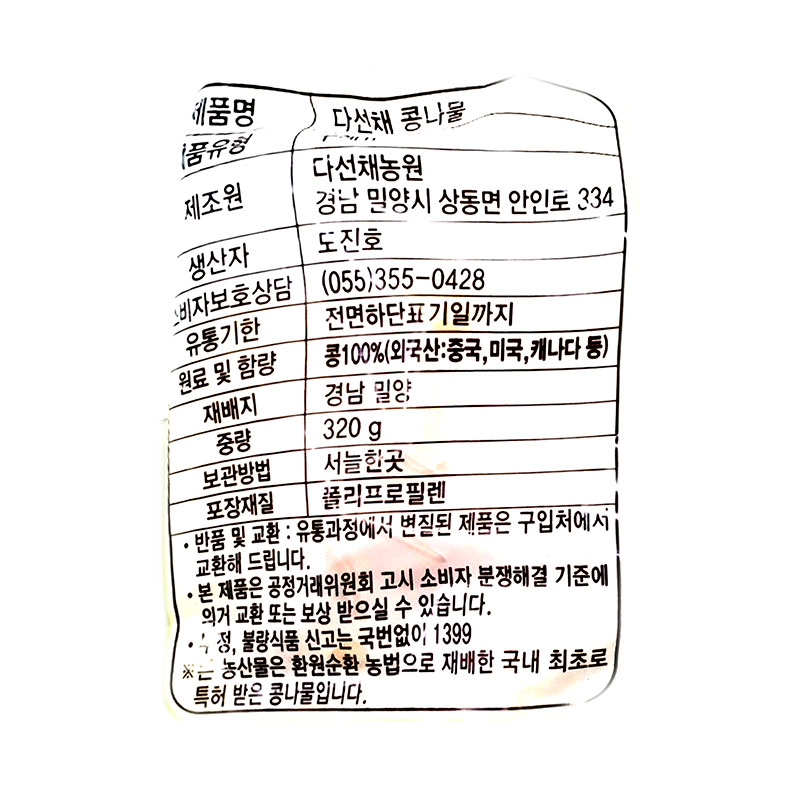 제품명 다선채 콩나물
품유형
제조원 다선채농원
경남 밀양시 상동면 안인로 334
생산자 도진호
소비자보호상담 (055)355-0428
유통기한 전면하단표기일까지
원료 및 함량 콩100%(외국산:중국,미국,캐나다 등)
재배지 경남 밀양
중량 320 g
보관방법 서늘한곳
포장재질 폴리프로필렌
• 반품 및 교환 : 유통과정에서 변질된 제품은 구입처에서
교환해 드립니다.
• 본 제품은 공정거래위원회 고시 소비자 분쟁해결 기준에
의거 교환 또는 보상 받으실 수 있습니다.
• 부정, 불량식품 신고는 국번없이 1399
※본 농산물은 환원순환 농법으로 재배한 국내 최초로
특허 받은 콩나물입니다.